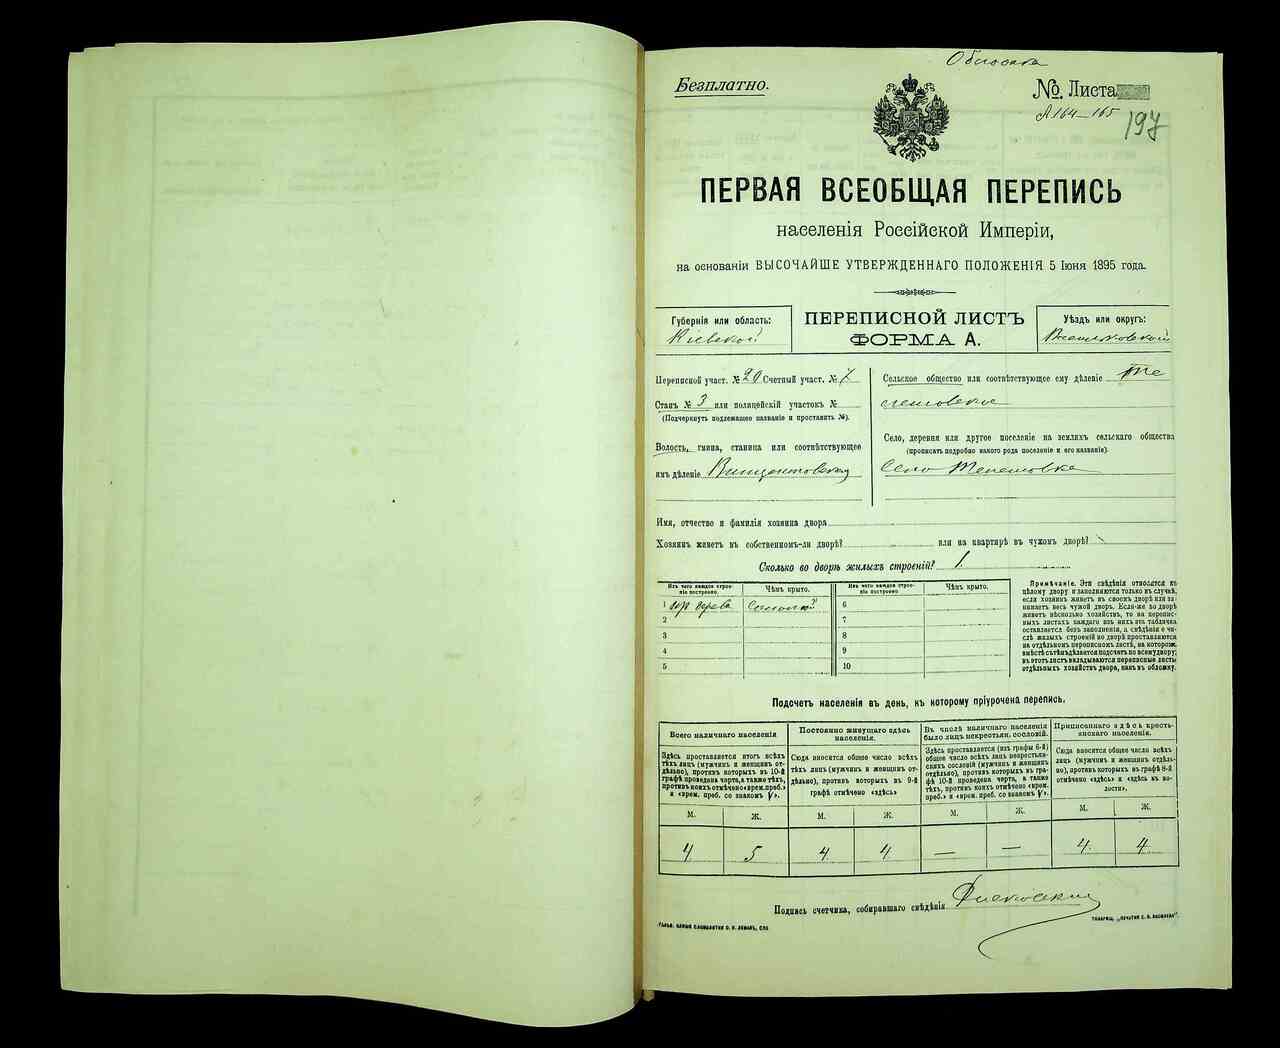 Обложка
Безплатно.
№ Листа
А 164–165
197
ПЕРВАЯ ВСЕОБЩАЯ ПЕРЕПИСЬ
населенія Россійской Имперіи,
на основаніи ВЫСОЧАЙШЕ УТВЕРЖДЕННАГО ПОЛОЖЕНІЯ 5 Іюня 1895 года.
Губернія или область:
Кіевской
ПЕРЕПИСНОЙ ЛИСТЪ
ФОРМА А.
Уѣздъ или округъ:
Васильковской
Переписной участ. № 20 Счетный участ. №
Станъ № 3 или полицейскій участокъ №
(Подчеркнуть подлежащее названіе и проставить №).
Волость, гмина, станица или соотвѣтствующее
имъ дѣленіе Винцентовская
Сельское общество или соотвѣтствующее ему дѣленіе Те
лешовское
Село, деревня или другое поселеніе на земляхъ сельскаго общества
(прописать подробно какого рода поселеніе и его названіе).
Село Телешовка
Имя, отчество и фамилія хозяина двора
Хозяинъ живетъ въ собственномъ-ли дворѣ? или на квартирѣ въ чужомъ дворѣ?
Сколько во дворѣ жилыхъ строеній? 1.
Изъ чего каждое строеніе построено.
Чѣмъ крыто.
Изъ чего каждое строеніе построено
Чѣмъ крыто.
1 изъ дерева Соломой 6
2 7
3 8
4 9
5 10
Примѣчаніе. Эти свѣдѣнія относятся къ
цѣлому двору и заполняются только въ случаѣ,
если хозяинъ живетъ въ своемъ дворѣ или за-
нимаетъ весь чужой дворъ. Если-же во дворѣ
живетъ нѣсколько хозяйствъ, то на перепис-
ныхъ листахъ каждаго изъ нихъ эта табличка
оставляется безъ заполненія, а свѣдѣнія о чи-
слѣ жилыхъ строеній во дворѣ проставляются
на отдѣльномъ переписномъ листѣ, на которомъ
вмѣстѣ съ тѣмъ дѣлается подсчетъ по всему двору;
въ этотъ листъ вкладываются переписные листы
отдѣльныхъ хозяйствъ двора, какъ въ обложку.
Подсчетъ населенія въ день, къ которому пріурочена перепись.
Всего наличнаго населенія
Здѣсь проставляется итогъ всѣхъ
тѣхъ лицъ (мужчинъ и женщинъ от-
дѣльно), противъ которыхъ въ 10-й
графѣ проведена черта, а также тѣхъ,
противъ коихъ отмѣчено «врем. преб.»
и «врем. преб. со знакомъ V».
Постоянно живущаго здѣсь
населенія.
Сюда вносится общее число всѣхъ
тѣхъ лицъ (мужчинъ и женщинъ от-
дѣльно), противъ которыхъ въ 9-й
графѣ отмѣчено «здѣсь»
Въ числѣ наличнаго населенія
было лицъ некрестьян. сословій.
Здѣсь проставляется (изъ графы 6-й)
общее число всѣхъ лицъ некрестьян-
скихъ сословій (мужчинъ и женщинъ
отдѣльно), противъ которыхъ въ гра-
фѣ 10-й проведена черта, а также
тѣхъ, противъ коихъ отмѣчено «врем.
преб.» и «врем. преб. со знакомъ V».
Приписаннаго здѣсь кресть-
янскаго населенія.
Сюда вносится общее число всѣхъ
лицъ (мужчинъ и женщинъ отдѣль-
но), противъ которыхъ въ графѣ 8-й
отмѣчено «здѣсь» и «здѣсь въ во-
лости».
М. Ж. М. Ж. М. Ж. М. Ж.
4 5 4 4 — — 4 4
Подпись счетчика, собиравшаго свѣдѣнія